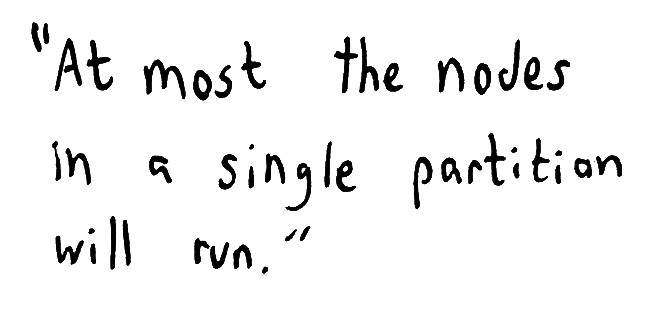 "At most the nodes
in a single partition
will run."